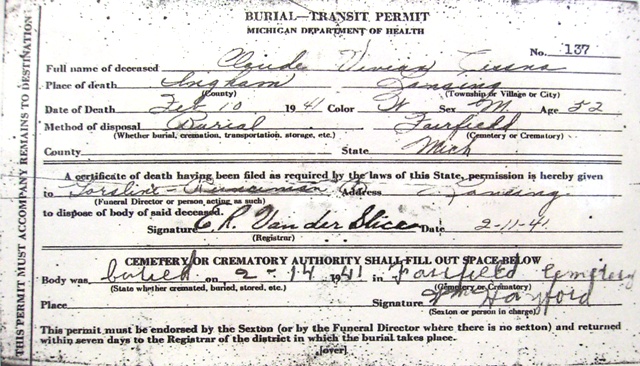 BURIAL—TRANSIT PERMIT
MICHIGAN DEPARTMENT OF HEALTH
No. 137
Full name of deceased Claude Vivian Cissna
Place of death Ingham Lansing
(County) (Township or Village or City)
Date of Death Feb 10 1941 Color W Sex M Age 52
Method of disposal Burial Fairfield
(Whether burial, cremation, transportation, storage, etc.) (Cemetery or Crematory)
County State Mich
A certificate of death having been filed as required by the laws of this State, permission is hereby given
to Gorsline-Runciman Address Lansing
(Funeral Director or person acting as such)
to dispose of body of said deceased.
Signature C. R. Van der Slice Date 2-11-41
(Registrar)
CEMETERY OR CREMATORY AUTHORITY SHALL FILL OUT SPACE BELOW
Body was buried on 2-14 1941 in Fairfield Cemetery
(State whether cremated, buried, stored, etc.) (Cemetery or Crematory)
Place Signature Wm Hayford
(Sexton or person in charge)
This permit must be endorsed by the Sexton (or by the Funeral Director where there is no sexton) and returned
within seven days to the Registrar of the district in which the burial takes place.
[over]
THIS PERMIT MUST ACCOMPANY REMAINS TO DESTINATION